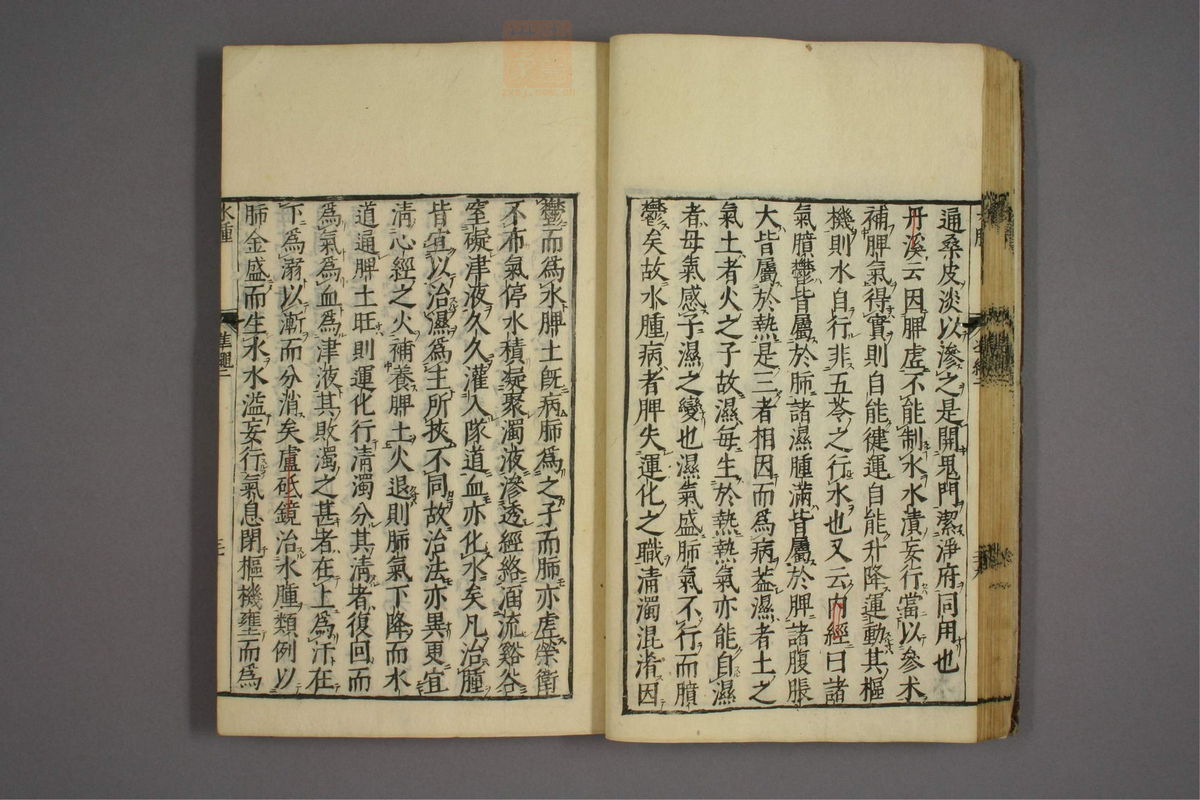 通桑皮淡以滲之是開鬼門潔淨府同用也
丹溪云因脾虛不能制水水漬妄行當以參术
補脾氣得實則自能健運自能升降運動其樞
機則水自行非五苓之行水也又云内經曰諸
氣膹鬱皆屬於肺諸濕腫滿皆屬於脾諸腹脹
大皆屬於熱是三者相因而爲病蓋濕者土之
氣土者火之子故濕毎生於熱熱氣亦能自濕
者母氣感子濕之變也濕氣盛肺氣不行而膹
鬱矣故水腫病者脾失運化之職清濁混淆因
鬱而爲水脾土旣病肺爲之子而肺亦虛榮衛
不布氣停水積凝聚濁液滲透經絡涸流谿谷
窒礙津液久久灌入隊道血亦化水矣凡治腫
皆宜以治濕爲主所挾不同故治法亦異更宜
清心經之火補養脾土火退則肺氣下降而水
道通脾土旺則運化行清濁分其清者復回而
爲氣爲血爲津液其敗濁之甚者在上爲汗在
下爲溺以漸而分消矣盧砥鏡治水腫類例以
肺金盛而生水水溢妄行氣息閉樞機壅而爲
水腫